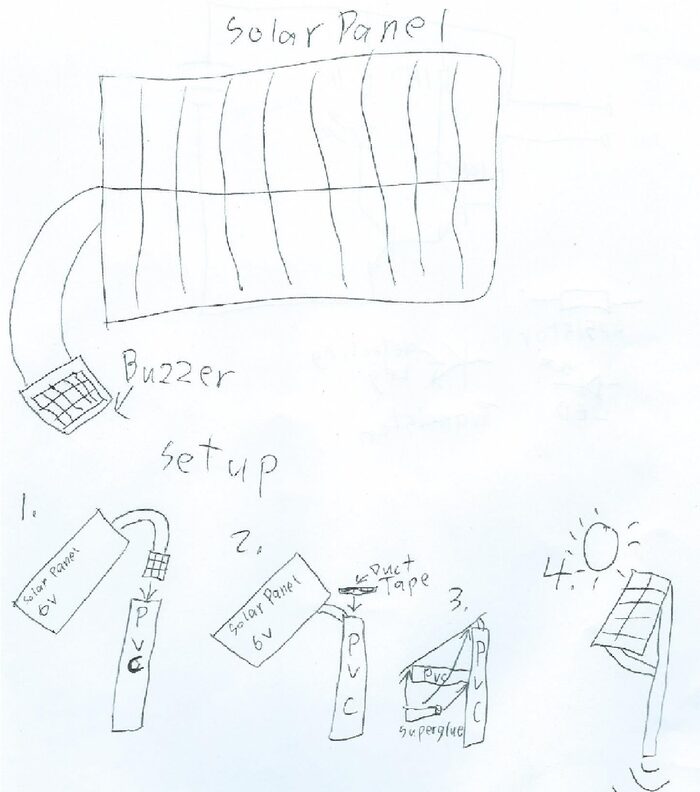 Solar Panel
Buzzer
Setup
1.
Solar Panel
6V
PVC
2.
Solar Panel
6V
Duct
Tape
PVC
3.
PVC
PVC
superglue
4.